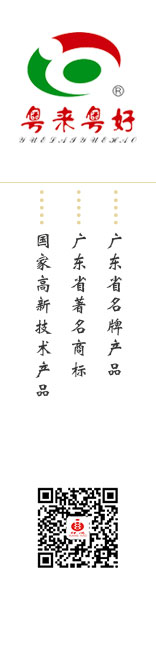 ®
粤来粤好
YUELAIYUEHAO
广东省名牌产品
广东省著名商标
国家高新技术产品